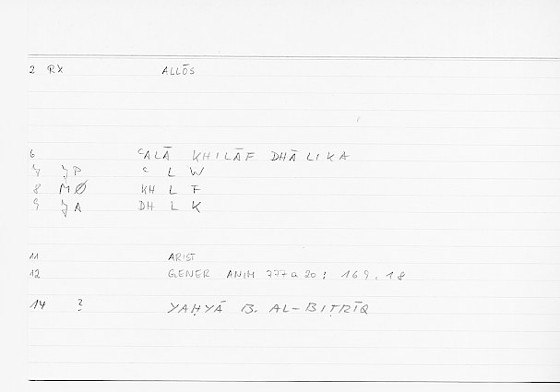 2 RX ALLŌS
6 ʿALĀ KHILĀF DHĀLIKA
7 JP ʿ L W
8 MØ KH L F
9 JA DH L K
11 ARIST
12 GENER ANIM 777a20: 169.18
14 ? YAḤYĀ B. AL-BIṬRĪQ